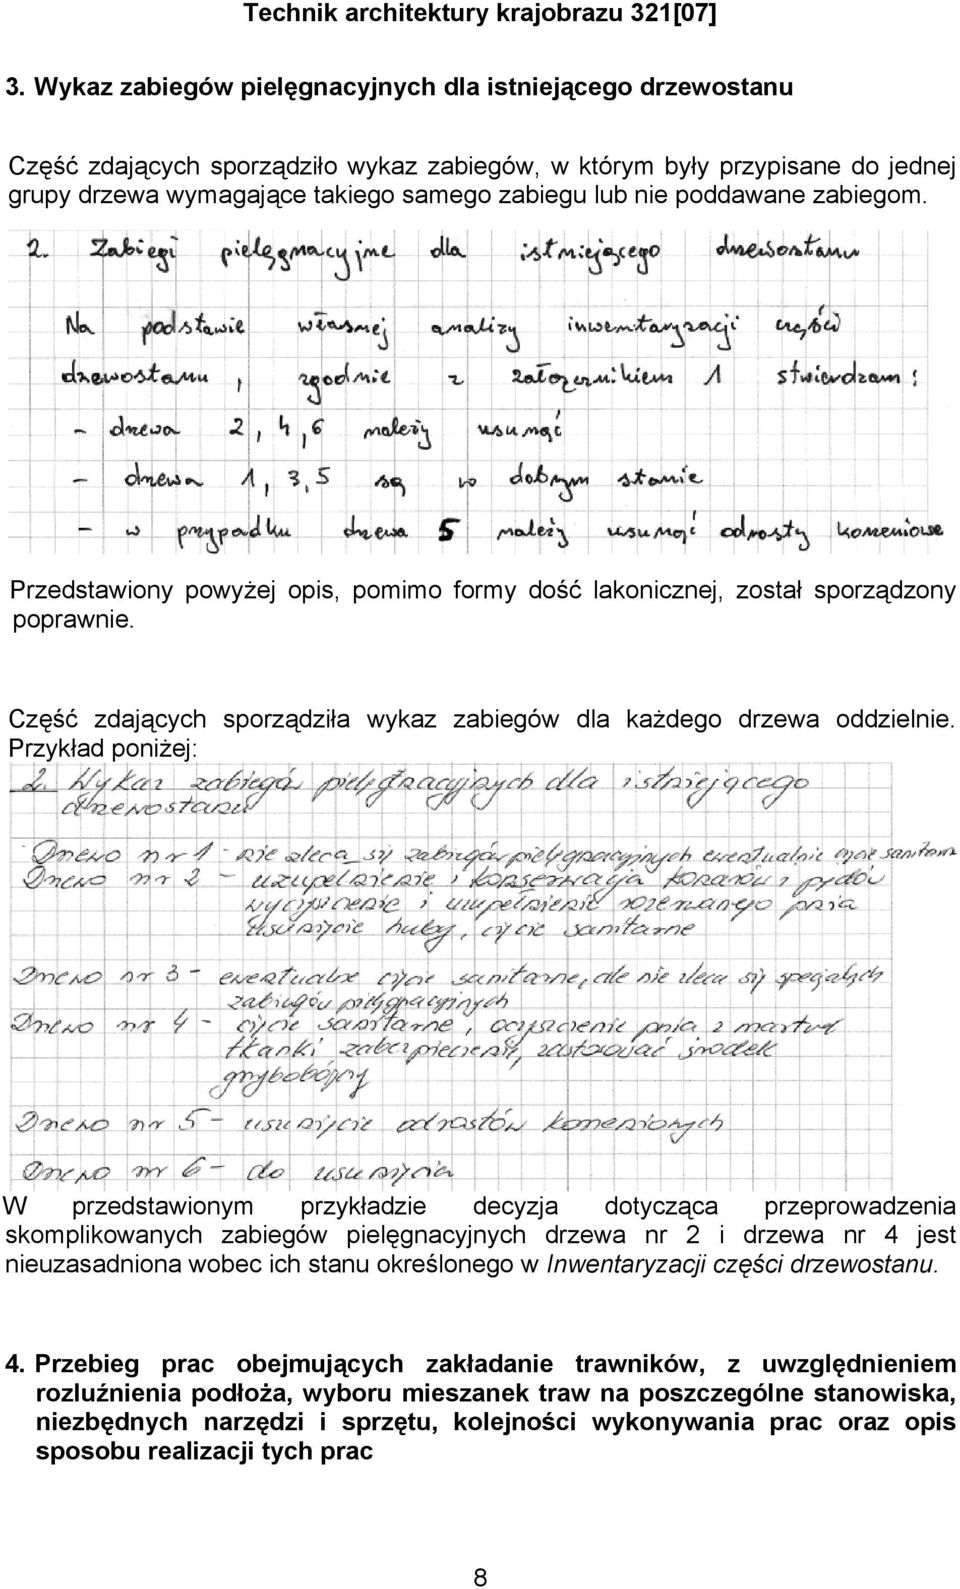 Technik architektury krajobrazu 321[07]
3. Wykaz zabiegów pielęgnacyjnych dla istniejącego drzewostanu
Część zdających sporządziło wykaz zabiegów, w którym były przypisane do jednej
grupy drzewa wymagające takiego samego zabiegu lub nie poddawane zabiegom.
2. Zabiegi pielęgnacyjne dla istniejącego drzewostanu
Na podstawie własnej analizy inwentaryzacji części
drzewostanu, zgodnie z załącznikiem 1 stwierdzam:
- drzewa 2, 4, 6 należy usunąć
- drzewa 1, 3, 5 są w dobrym stanie
- w przypadku drzewa 5 należy usunąć odrosty korzeniowe
Przedstawiony powyżej opis, pomimo formy dość lakonicznej, został sporządzony
poprawnie.
Część zdających sporządziła wykaz zabiegów dla każdego drzewa oddzielnie.
Przykład poniżej:
2. Wykaz zabiegów pielęgnacyjnych dla istniejącego
drzewostanu
Drzewo nr 1 - nie zleca się zabiegów pielęgnacyjnych ewentualnie cięcie sanitarne
Drzewo nr 2 - uzupełnienie i konserwacja konarów i pędów
wyczyszczenie i wypełnienie rozerwanego pnia
usunięcie huby, cięcie sanitarne
Drzewo nr 3 - ewentualne cięcie sanitarne, ale nie zleca się specjalnych
zabiegów pielęgnacyjnych
Drzewo nr 4 - cięcie sanitarne, oczyszczenie pnia z martwej
tkanki zabezpieczenie, zastosować środek
grzybobójczy
Drzewo nr 5 - usunięcie odrostów korzeniowych
Drzewo nr 6 - do usunięcia
W przedstawionym przykładzie decyzja dotycząca przeprowadzenia
skomplikowanych zabiegów pielęgnacyjnych drzewa nr 2 i drzewa nr 4 jest
nieuzasadniona wobec ich stanu określonego w Inwentaryzacji części drzewostanu.
4. Przebieg prac obejmujących zakładanie trawników, z uwzględnieniem
rozluźnienia podłoża, wyboru mieszanek traw na poszczególne stanowiska,
niezbędnych narzędzi i sprzętu, kolejności wykonywania prac oraz opis
sposobu realizacji tych prac
8